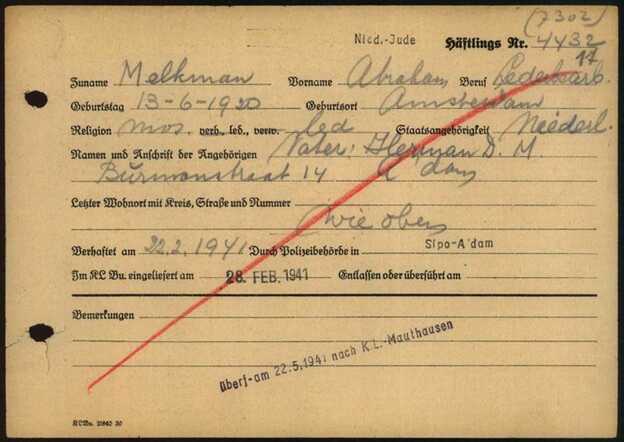 (7302)
Nied.-Jude Häftlings Nr. 4432
17
Zuname Melkman Vorname Abraham Beruf Lederarb.
Geburtstag 13-6-1920 Geburtsort Amsterdam
Religion mos. verh., led., verw. led Staatsangehörigkeit Niederl.
Namen und Anschrift der Angehörigen Vater: Herman D. M.
Burmanstraat 14 A'dam
Letzter Wohnort mit Kreis, Straße und Nummer
wie oben
Verhaftet am 22.2.1941 Durch Polizeibehörde in Sipo-A'dam
Im KL Bu. eingeliefert am 28. FEB. 1941 Entlassen oder überführt am
Bemerkungen
überf-am 22.5.1941 nach K.L.-Mauthausen